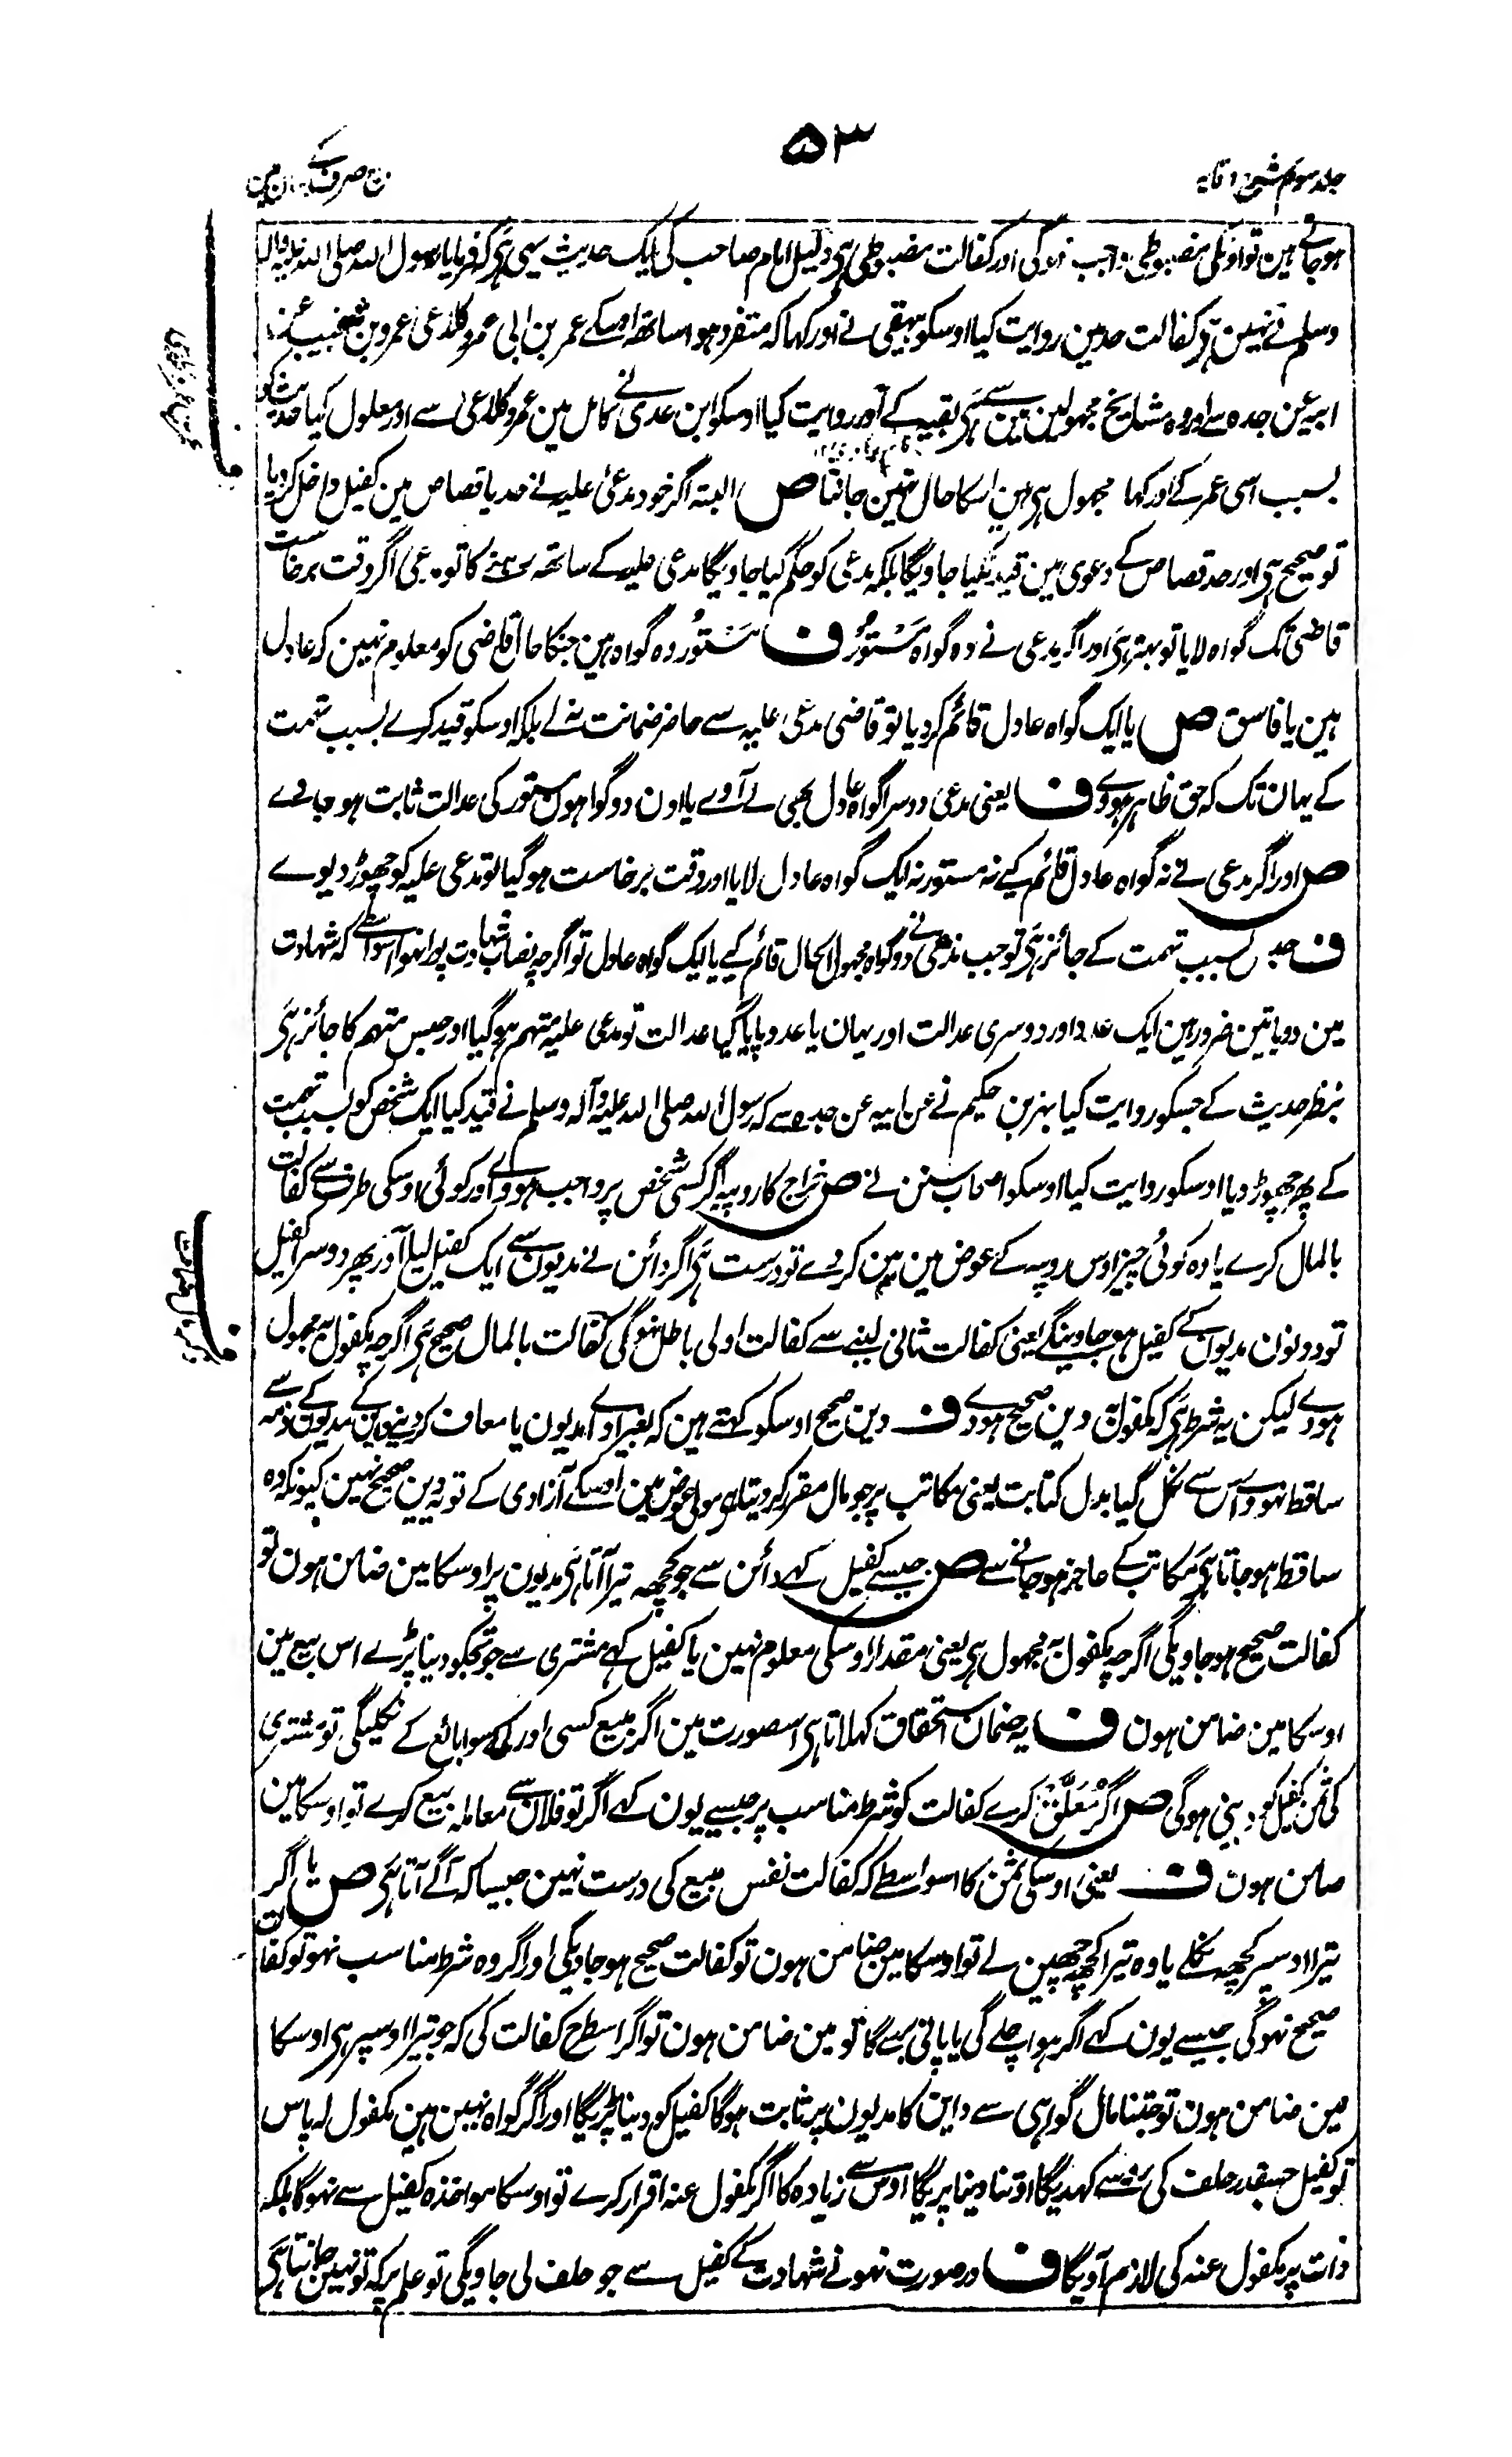 ۵۳
جلد سوم شرح وقایہ
بیع صرف کے بیان مین
ہوجاتے ہین تو اونکی مضبوطی واجب نہوگی اور کفالت مضبوطی ہی دلیل امام صاحب کی ایک حدیث بھی ہی کہ فرمایا رسول اللہ صلی اللہ علیہ وآلہ
وسلم نے نہین ہی کفالت حد مین روایت کیا اوسکو بیہقی نے اور کہا کہ متفرد ہوا ساتھ اوسکے عمر بن ابی عمر و کلاعی عمرو بن شعیب عن
ابیہ عن جدہ سے اور وہ مشایخ مجہولین مین سے ہی بقیہ کے اور روایت کیا اوسکو ابن عدی نے کامل مین عمر و کلاعی سے اور معلول کیا حدیث کو
بسبب اسی عمر کے اور کہا مجہول ہی مین اسکا حال نہین جانتا ص البتہ اگر خود مدعی علیہ نے حد یا قصاص مین کفیل داخل کر دیا
تو صحیح ہی اور حد قصاص کے دعوی مین قید نکیا جاویگا بلکہ مدعی کو حکم کیا جاویگا مدعی علیہ کے ساتھ رہنے کا تو مدعی اگر وقت برخاست
قاضی تک گواہ لایا تو بہتر ہی اور اگر مدعی نے دو گواہ مَسْتُوْر ف مَسْتُور وہ گواہ ہین جنکا حال قاضی کو معلوم نہین کہ عادل
ہین یا فاسق ص یا ایک گواہ عادل قائم کر دیا تو قاضی مدعی علیہ سے حاضر ضمانت نہ لے بلکہ اوسکو قید کرے بسبب تہمت
کے یہان تک کہ حق ظاہر ہووے ف یعنی مدعی دوسرا گواہ عادل بھی لے آوے یا اون دو گواہون مستور کی عدالت ثابت ہو جاوے
ص اور اگر مدعی نے نہ گواہ عادل قائم کیے نہ مستور نہ ایک گواہ عادل لایا اور وقت برخاست ہو گیا تو مدعی علیہ کو چھوڑ دیوے
ف حبس بسبب تہمت کے جائز ہی تو جب مدعی نے دو گواہ مجہول الحال قائم کیے یا ایک گواہ عادل تو اگرچہ نصاب شہادت پورا نہوا اسواسطے کہ شہادت
مین دو باتین ضرور ہین ایک عدد اور دوسری عدالت اور یہان یا عدد پایا گیا یا عدالت تو مدعی علیہ متہم ہو گیا اور حبس متہم کا جائز ہی
بنظر حدیث کے جسکو روایت کیا بہز بن حکیم نے عن ابیہ عن جدہ سے کہ رسول اللہ صلی اللہ علیہ وآلہ وسلم نے قید کیا ایک شخص کو بسبب تہمت
کے پھر چھوڑ دیا اوسکو روایت کیا اوسکو اصحاب سنن نے ص خراج کا روپیہ اگر کسی شخص پر واجب ہووے اور کوئی اوسکی طرف سے کفالت
بالمال کرے یا وہ کوئی چیز اوس روپیہ کے عوض مین رہن کر دے تو درست ہی اگر دائن نے مدیون سے ایک کفیل لیا اور پھر دوسرا کفیل
تو دونون مدیون کے کفیل ہو جاوینگے یعنی کفالت ثانی لینے سے کفالت اولی باطل نہوگی کفالت بالمال صحیح ہی اگرچہ مکفول بہ مجہول
ہووے لیکن یہ شرط ہی کہ مکفول بہ دین صحیح ہووے ف دین صحیح اوسکو کہتے ہین کہ بغیر ادائے مدیون یا معاف کر دینے دائن کے مدیون کے ذمہ سے
ساقط نہووے اس سے نکل گیا بدل کتابت یعنی مکاتب پر جو مال مقرر کر دیتا ہی مولی عوض مین اوسکے آزادی کے تو یہ دین صحیح نہین کیونکہ وہ
ساقط ہو جاتا ہی مکاتب کے عاجز ہو جانے سے ص جیسے کفیل کہے دائن سے جو کچھ تیرا آتا ہی مدیون پر اوسکا مین ضامن ہون تو
کفالت صحیح ہو جاویگی اگرچہ مکفول بہ مجہول ہی یعنی مقدار اوسکی معلوم نہین یا کفیل کہے مشتری سے جو تجکو دینا پڑے اس بیع مین
اوسکا مین ضامن ہون ف یہ ضمان استحقاق کہلاتا ہی اسصورت مین اگر مبیع کسی اور کی سوا بائع کے نکلیگی تو مشتری
کی ثمن کفیل کو دینی ہوگی ص اگر مُعَلَّق کرے کفالت کو شرط مناسب پر جیسے یون کہے اگر تو فلان سے معاملہ بیع کرے تو اوسکا مین
ضامن ہون ف یعنی اوسکی ثمن کا اسواسطے کہ کفالت نفس مبیع کی درست نہین جیسا کہ آگے آتا ہی ص یا اگر
تیرا اوسپر کچھ نکلے یا وہ تیرا کچھ چھین لے تو اوسکا مین ضامن ہون تو کفالت صحیح ہو جاویگی اور اگر وہ شرط مناسب نہو تو کفالت
صحیح نہوگی جیسے یون کہے اگر ہوا چلے گی یا پانی برسے گا تو مین ضامن ہون تو اگر اسطرح کفالت کی کہ جو تیرا اوسپر ہی اوسکا
مین ضامن ہون تو جتنا مال گواہی سے داین کا مدیون پر ثابت ہوگا کفیل کو دینا پڑیگا اور اگر گواہ نہین ہین مکفول لہ پاس
تو کفیل جسقدر حلف کی رو سے کہدیگا اوتنا دینا پڑیگا اوس سے زیادہ کا اگر مکفول عنہ اقرار کرے تو اوسکا مواخذہ کفیل سے نہوگا بلکہ
ذات پر مکفول عنہ کی لازم آویگا ف در صورت نہونے شہادت کے کفیل سے جو حلف لی جاویگی تو علم پر کہ تو نہین جانتا ہی